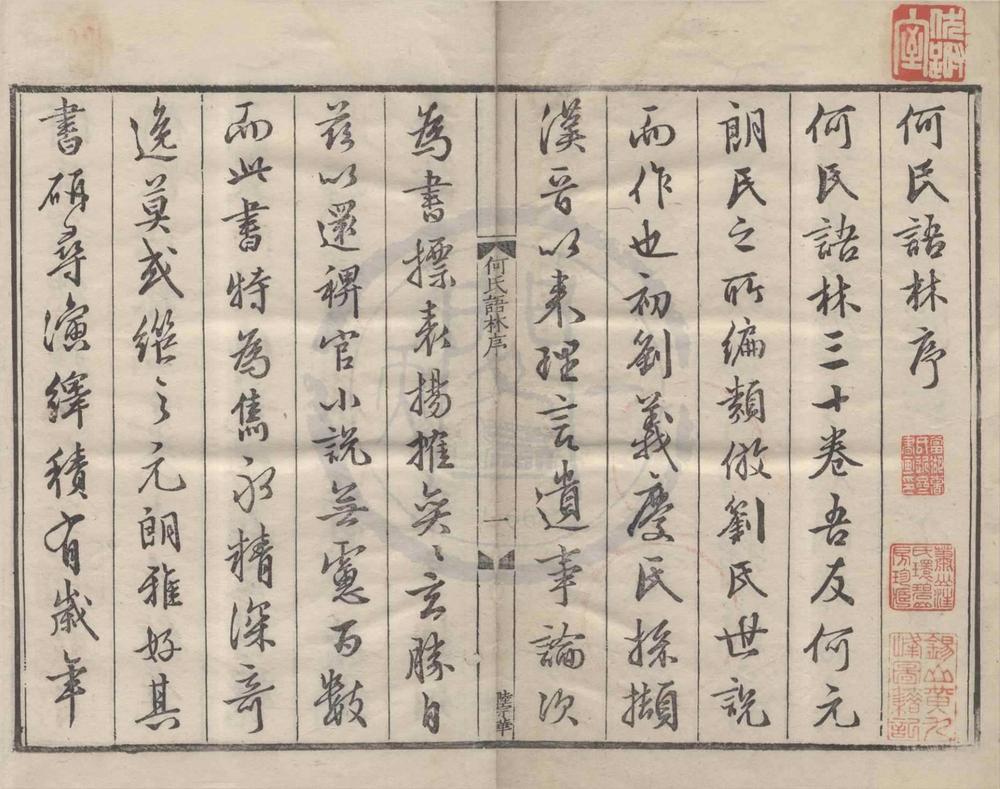 何氏語林序
何氏語林三十卷吾友何元
朗氏之所編類倣劉氏世說
而作也初劉義慶氏採擷
漢晉以來理言遺事論次
為書標表揚搉奕〻玄勝自
茲以還稗官小說無慮百數
而此書特為雋永精深竒
逸莫或繼之元朗雅好其
書研尋演繹積有歲年
何氏語林序
一
陸宗華